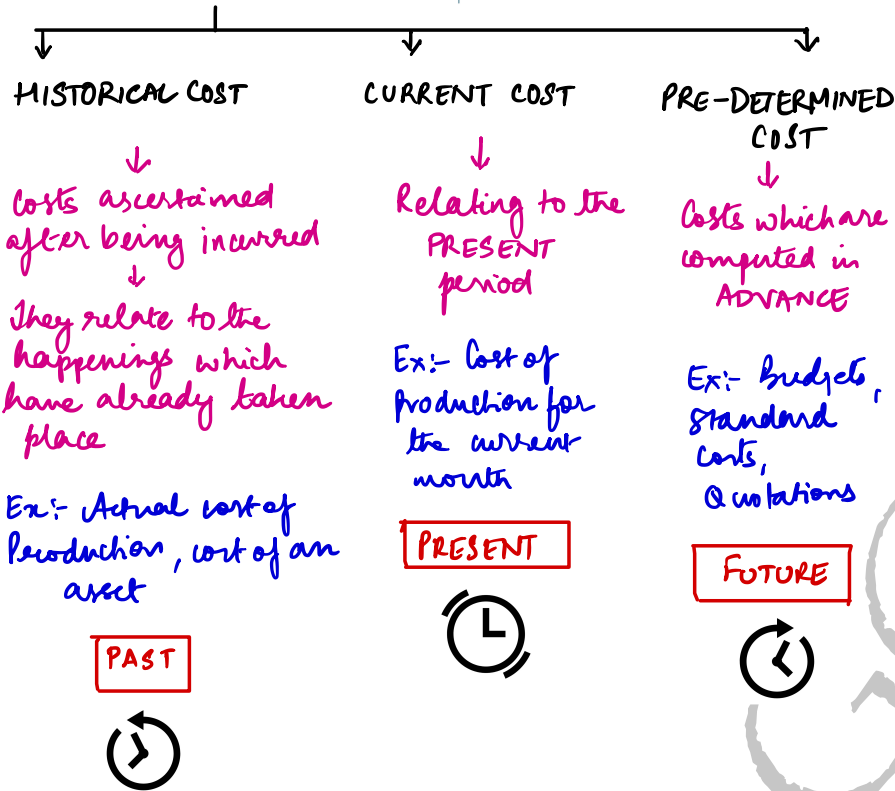 HISTORICAL COST
Costs ascertained
after being incurred
They relate to the
happenings which
have already taken
place
Ex:- Actual cost of
Production, cost of an
asset
PAST
CURRENT COST
Relating to the
PRESENT
period
Ex:- Cost of
Production for
the current
month
PRESENT
PRE-DETERMINED
COST
Costs which are
computed in
ADVANCE
Ex:- Budgets,
Standard
Costs,
Quotations
FUTURE